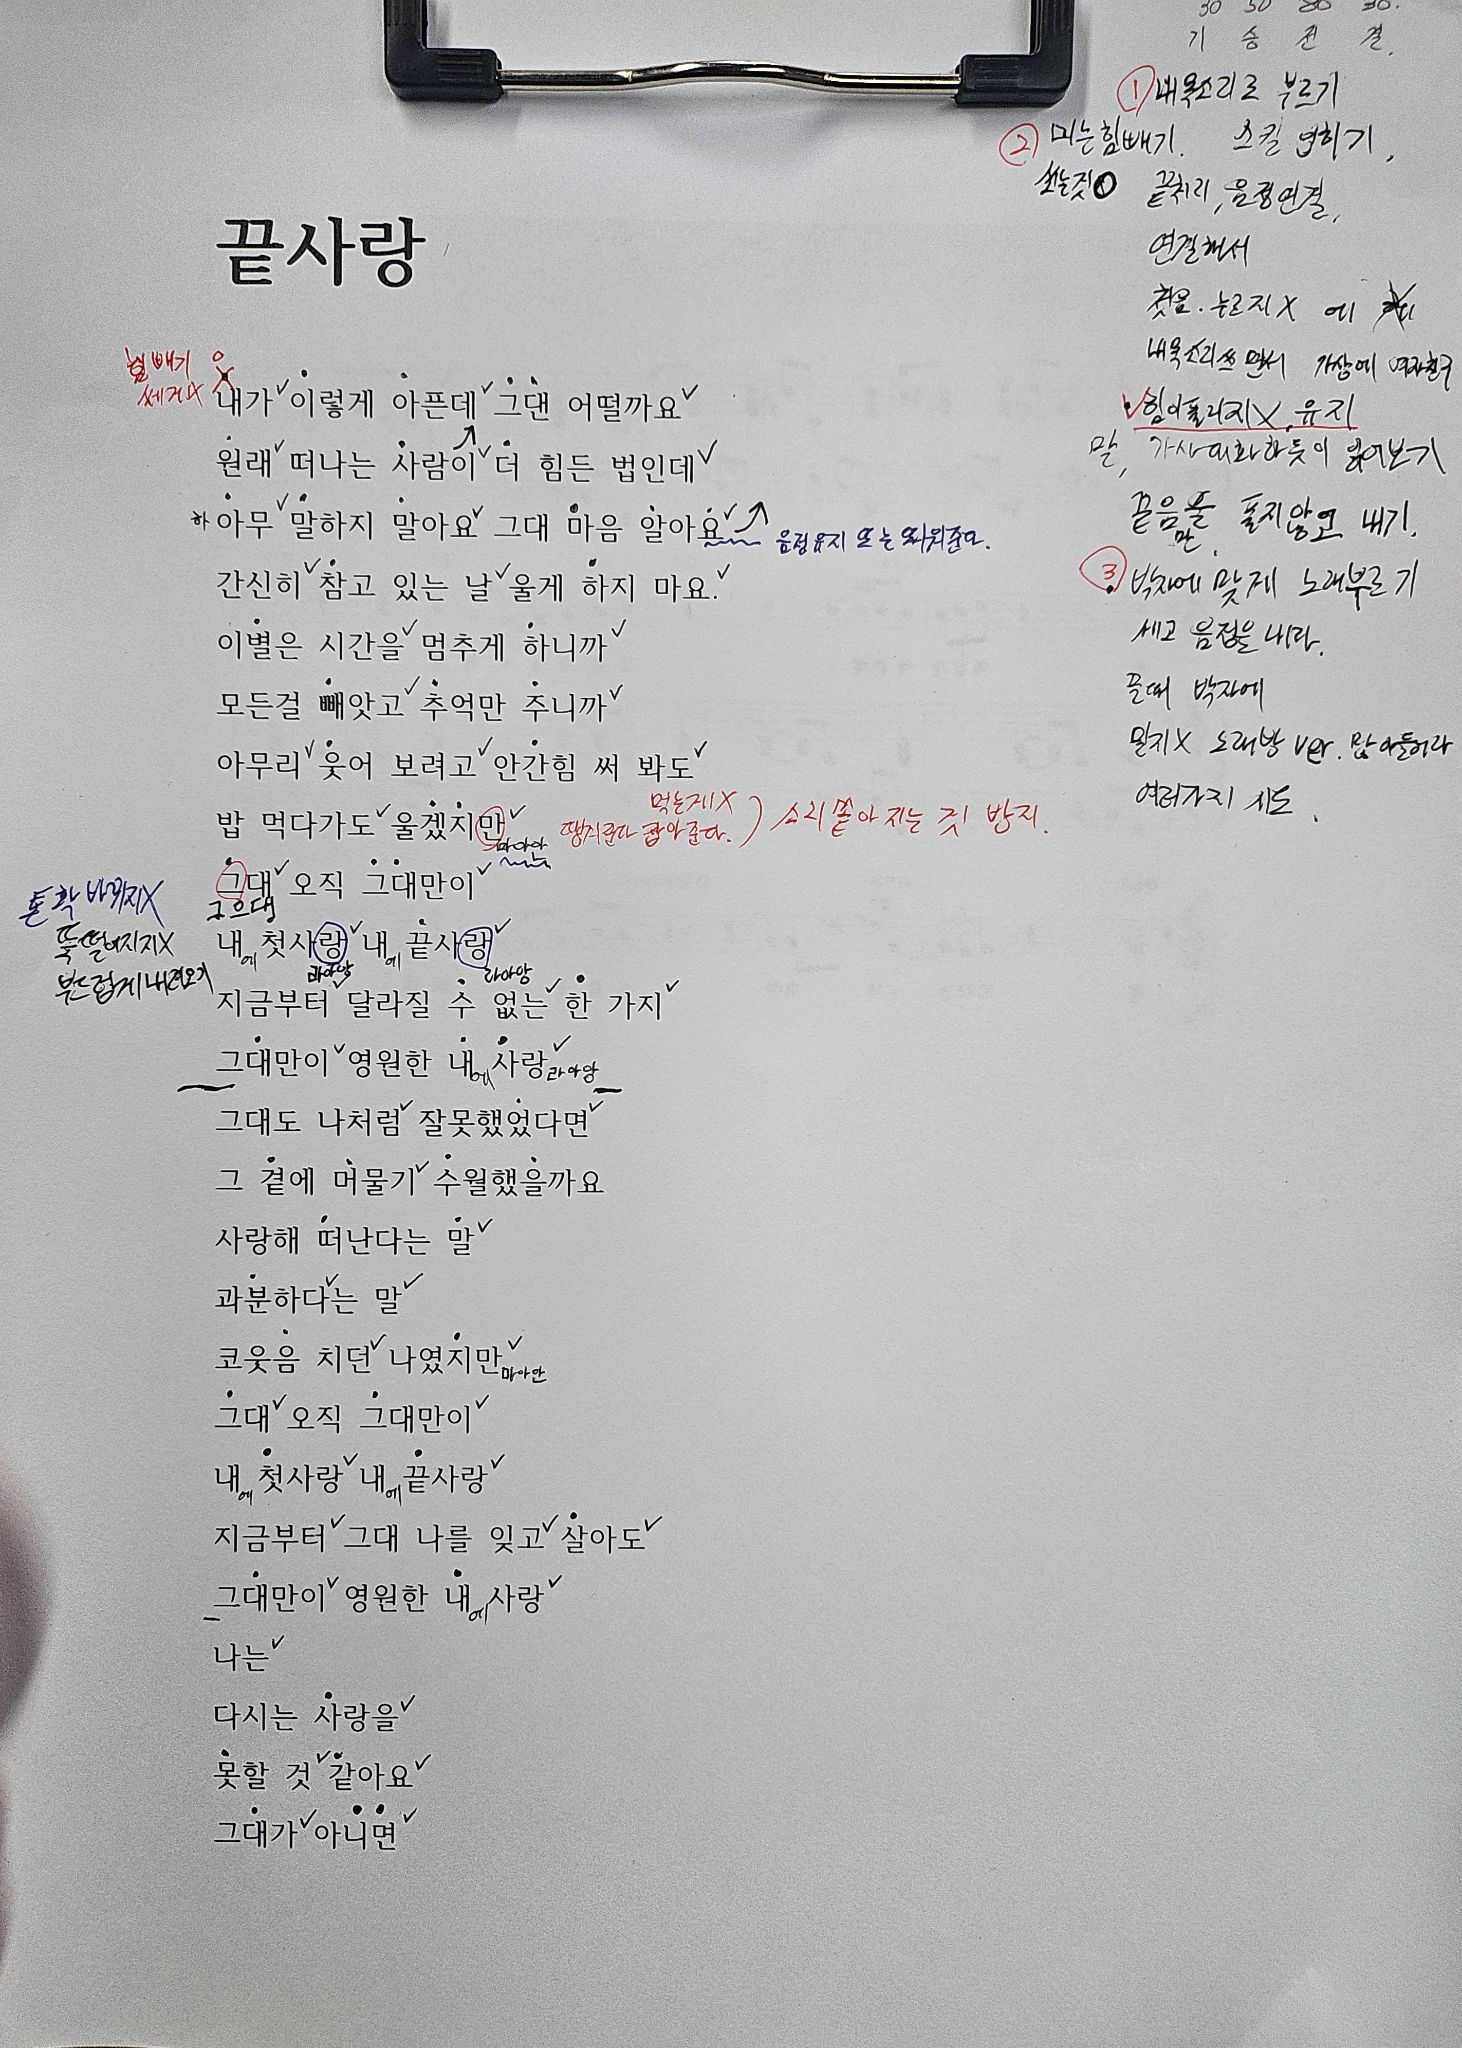 30 50 80 30.
기 승 전 결.
① 내 목소리로 부르기
② 미는힘빼기. 스킬 입히기,
쏘는것O 끝처리, 음정연결,
연결해서
첫음. 누르지X 에
내목소리쓰면서 가상에 여자친구
✓힘이풀리지X, 유지
말, 가사 대화하듯이 읽어보기
끝음만 풀지않고 내기.
③ 박자에 맞게 노래부르기
세고 음정을내라.
끌때 박자에
밀지X 노래방 ver. 많이들어라
여러가지 시도.
끝사랑
힘빼기
쎄게X
내가✓이렇게 아픈데✓그댄 어떨까요✓
원래✓떠나는 사람이✓더 힘든 법인데✓
하 아무✓말하지 말아요✓그대 마음 알아요✓ 음정유지 또는 띄워준다.
간신히✓참고 있는 날✓울게 하지 마요.✓
이별은 시간을✓멈추게 하니까✓
모든걸 빼앗고✓추억만 주니까✓
아무리✓웃어 보려고✓안간힘 써 봐도✓
밥 먹다가도✓울겠지만✓ 마아안
먹는게X
땡겨준다 잡아준다. ) 소리 쏟아지는 것 방지.
그대✓오직 그대만이✓
그으대
톤 확 바뀌지X
뚝떨어지지X
부드럽게 내려오기
내에 첫사랑✓내에 끝사랑✓
라아앙 라아앙
지금부터✓달라질 수 없는✓한 가지✓
그대만이✓영원한 내에 사랑✓라아앙
그대도 나처럼✓잘못했었다면✓
그 곁에 머물기✓수월했을까요
사랑해 떠난다는 말✓
과분하다✓는 말✓
코웃음 치던✓나였지만✓마아안
그대✓오직 그대만이✓
내에 첫사랑✓내에 끝사랑✓
지금부터✓그대 나를 잊고✓살아도✓
그대만이✓영원한 내에 사랑✓
나는✓
다시는 사랑을✓
못할 것✓같아요✓
그대가✓아니면✓